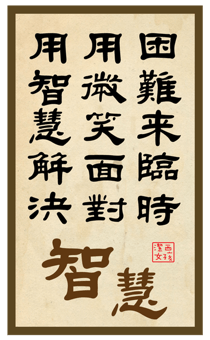 困難來臨時
用微笑面對
用智慧解決
智慧